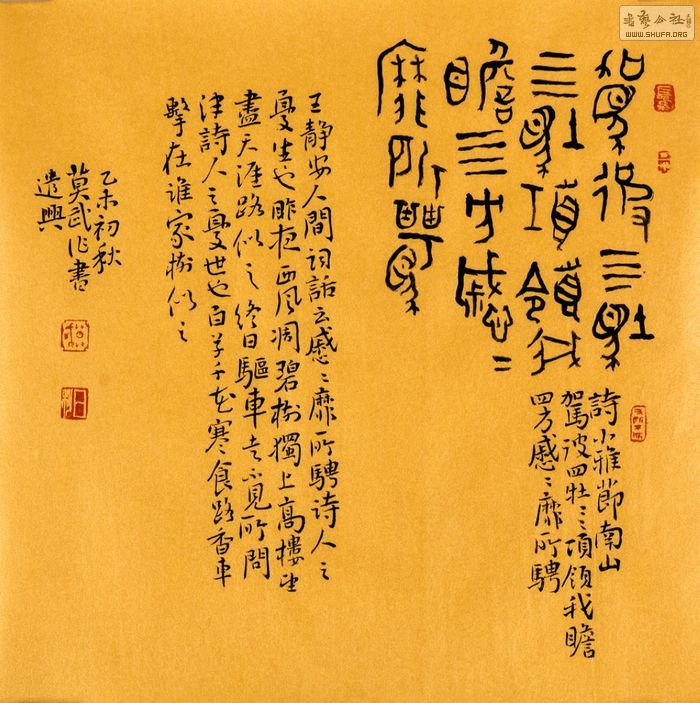 駕彼亖牡
亖牡項領我
瞻亖方蹙〻
靡所騁
詩小雅節南山
駕彼四牡〻項領我瞻
四方蹙〻靡所騁
王静安人間詞話云蹙〻靡所騁诗人之
憂生也昨夜西風凋碧樹獨上高樓望
盡天涯路似之終日驅車走不見所問
津詩人之憂世也百草千花寒食路香車
擊在誰家樹似之
乙未初秋
莫武作書
遣興
書藝公社
WWW.SHUFA.ORG